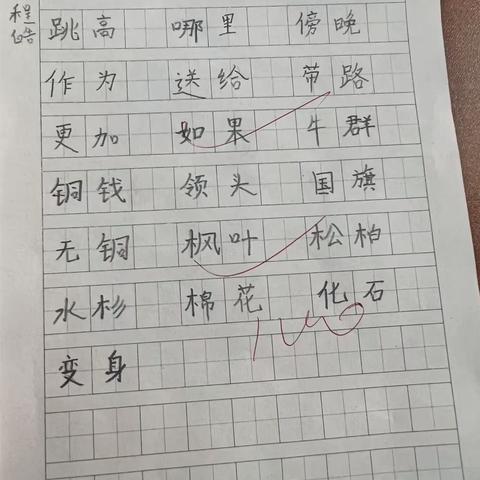 程皓
跳高 哪里 傍晚
作为 送给 带路
更加 如果 牛群
铜钱 领头 国旗
无铜 枫叶 松柏
水杉 棉花 化石
变身
100